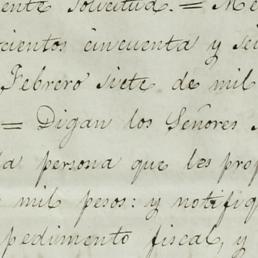 ente solicitud. = Me
cientos cincuenta y sei
Febrero siete de mil
= Digan los Señores
la persona que les prop
mil pesos: y notifiq
pedimento fiscal, y